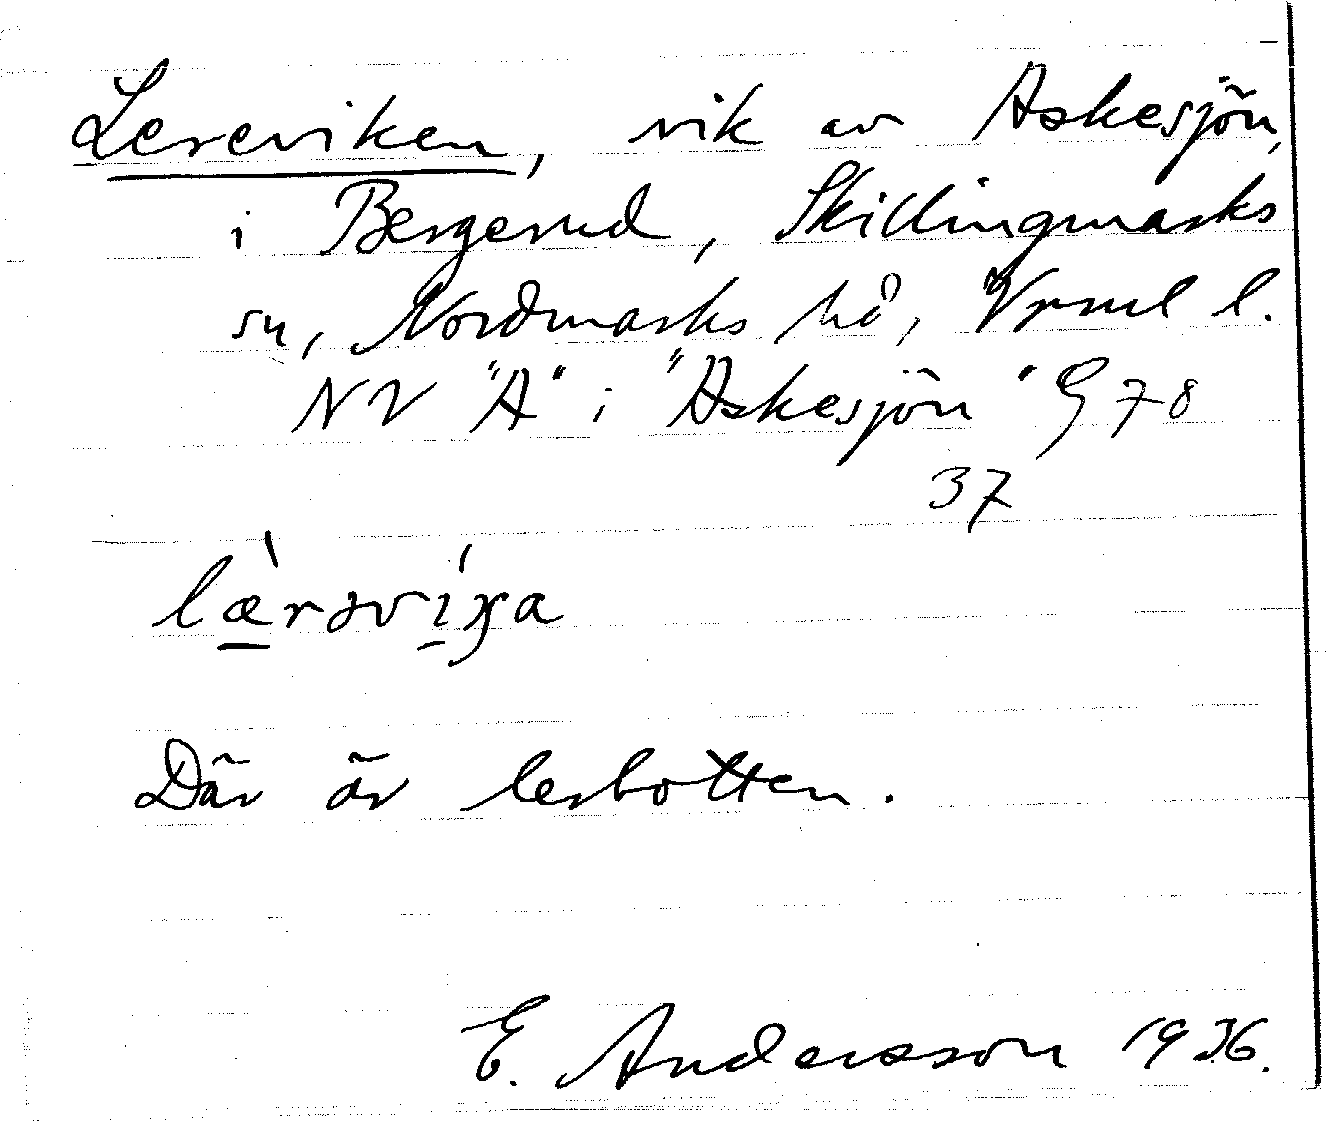 Lereviken, vik av Askesjön,
i Bergerud, Skillingmarks
sn, Nordmarks hd, Vrml l.
NV "A" i "Askesjön" G 78
37
lærəviɡa
Där är lerbotten.
E. Andersson 1936.